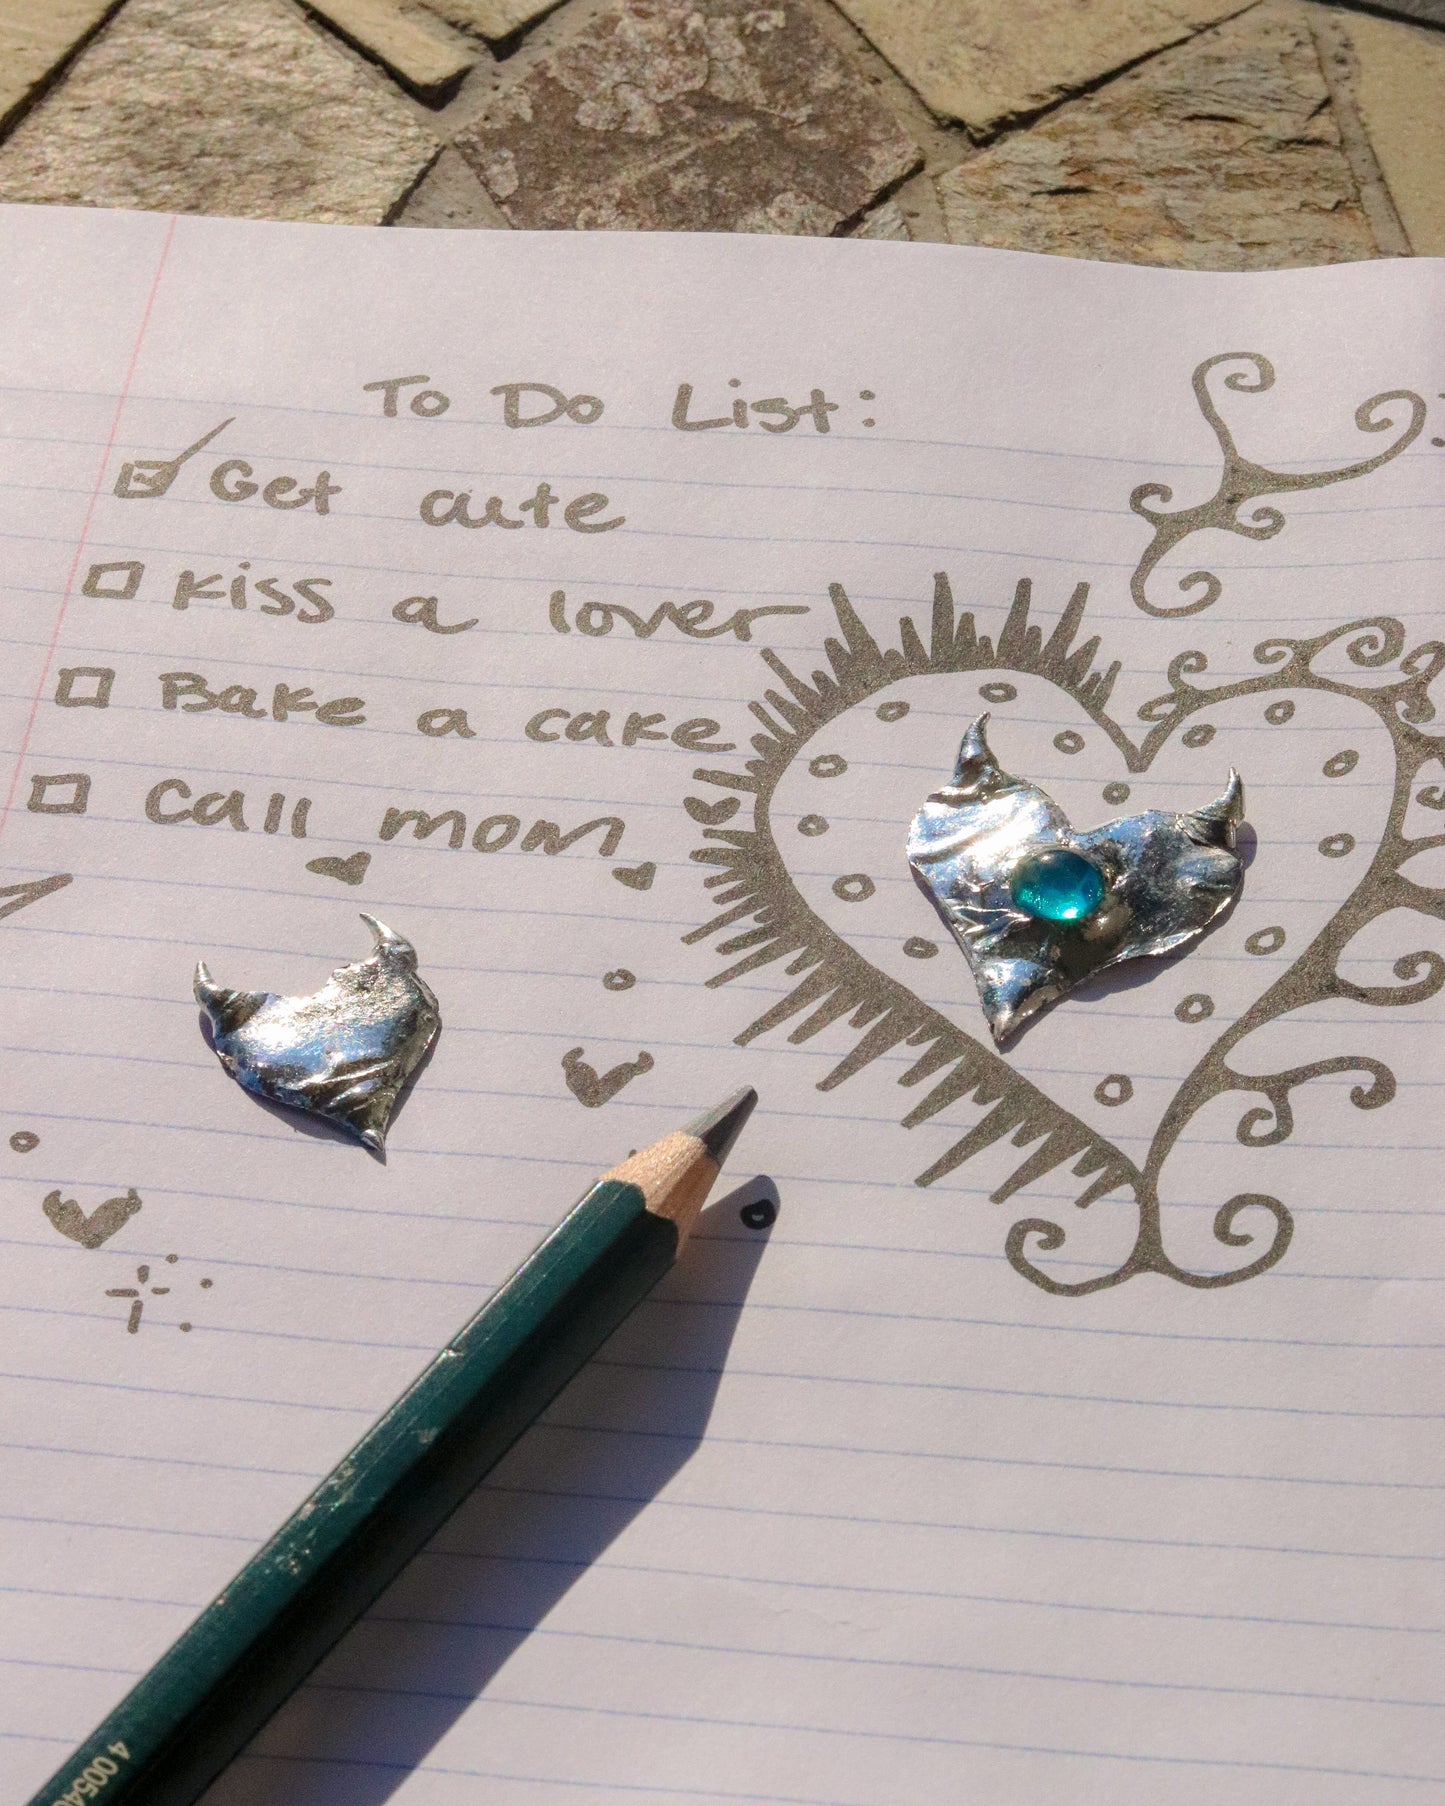 To Do List:
Get cute
Kiss a lover
Bake a cake
Call mom
4 00540